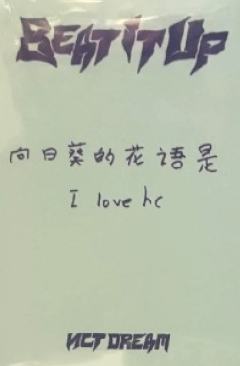 BEAT IT UP
向日葵的花語是
I love hc
NCT DREAM